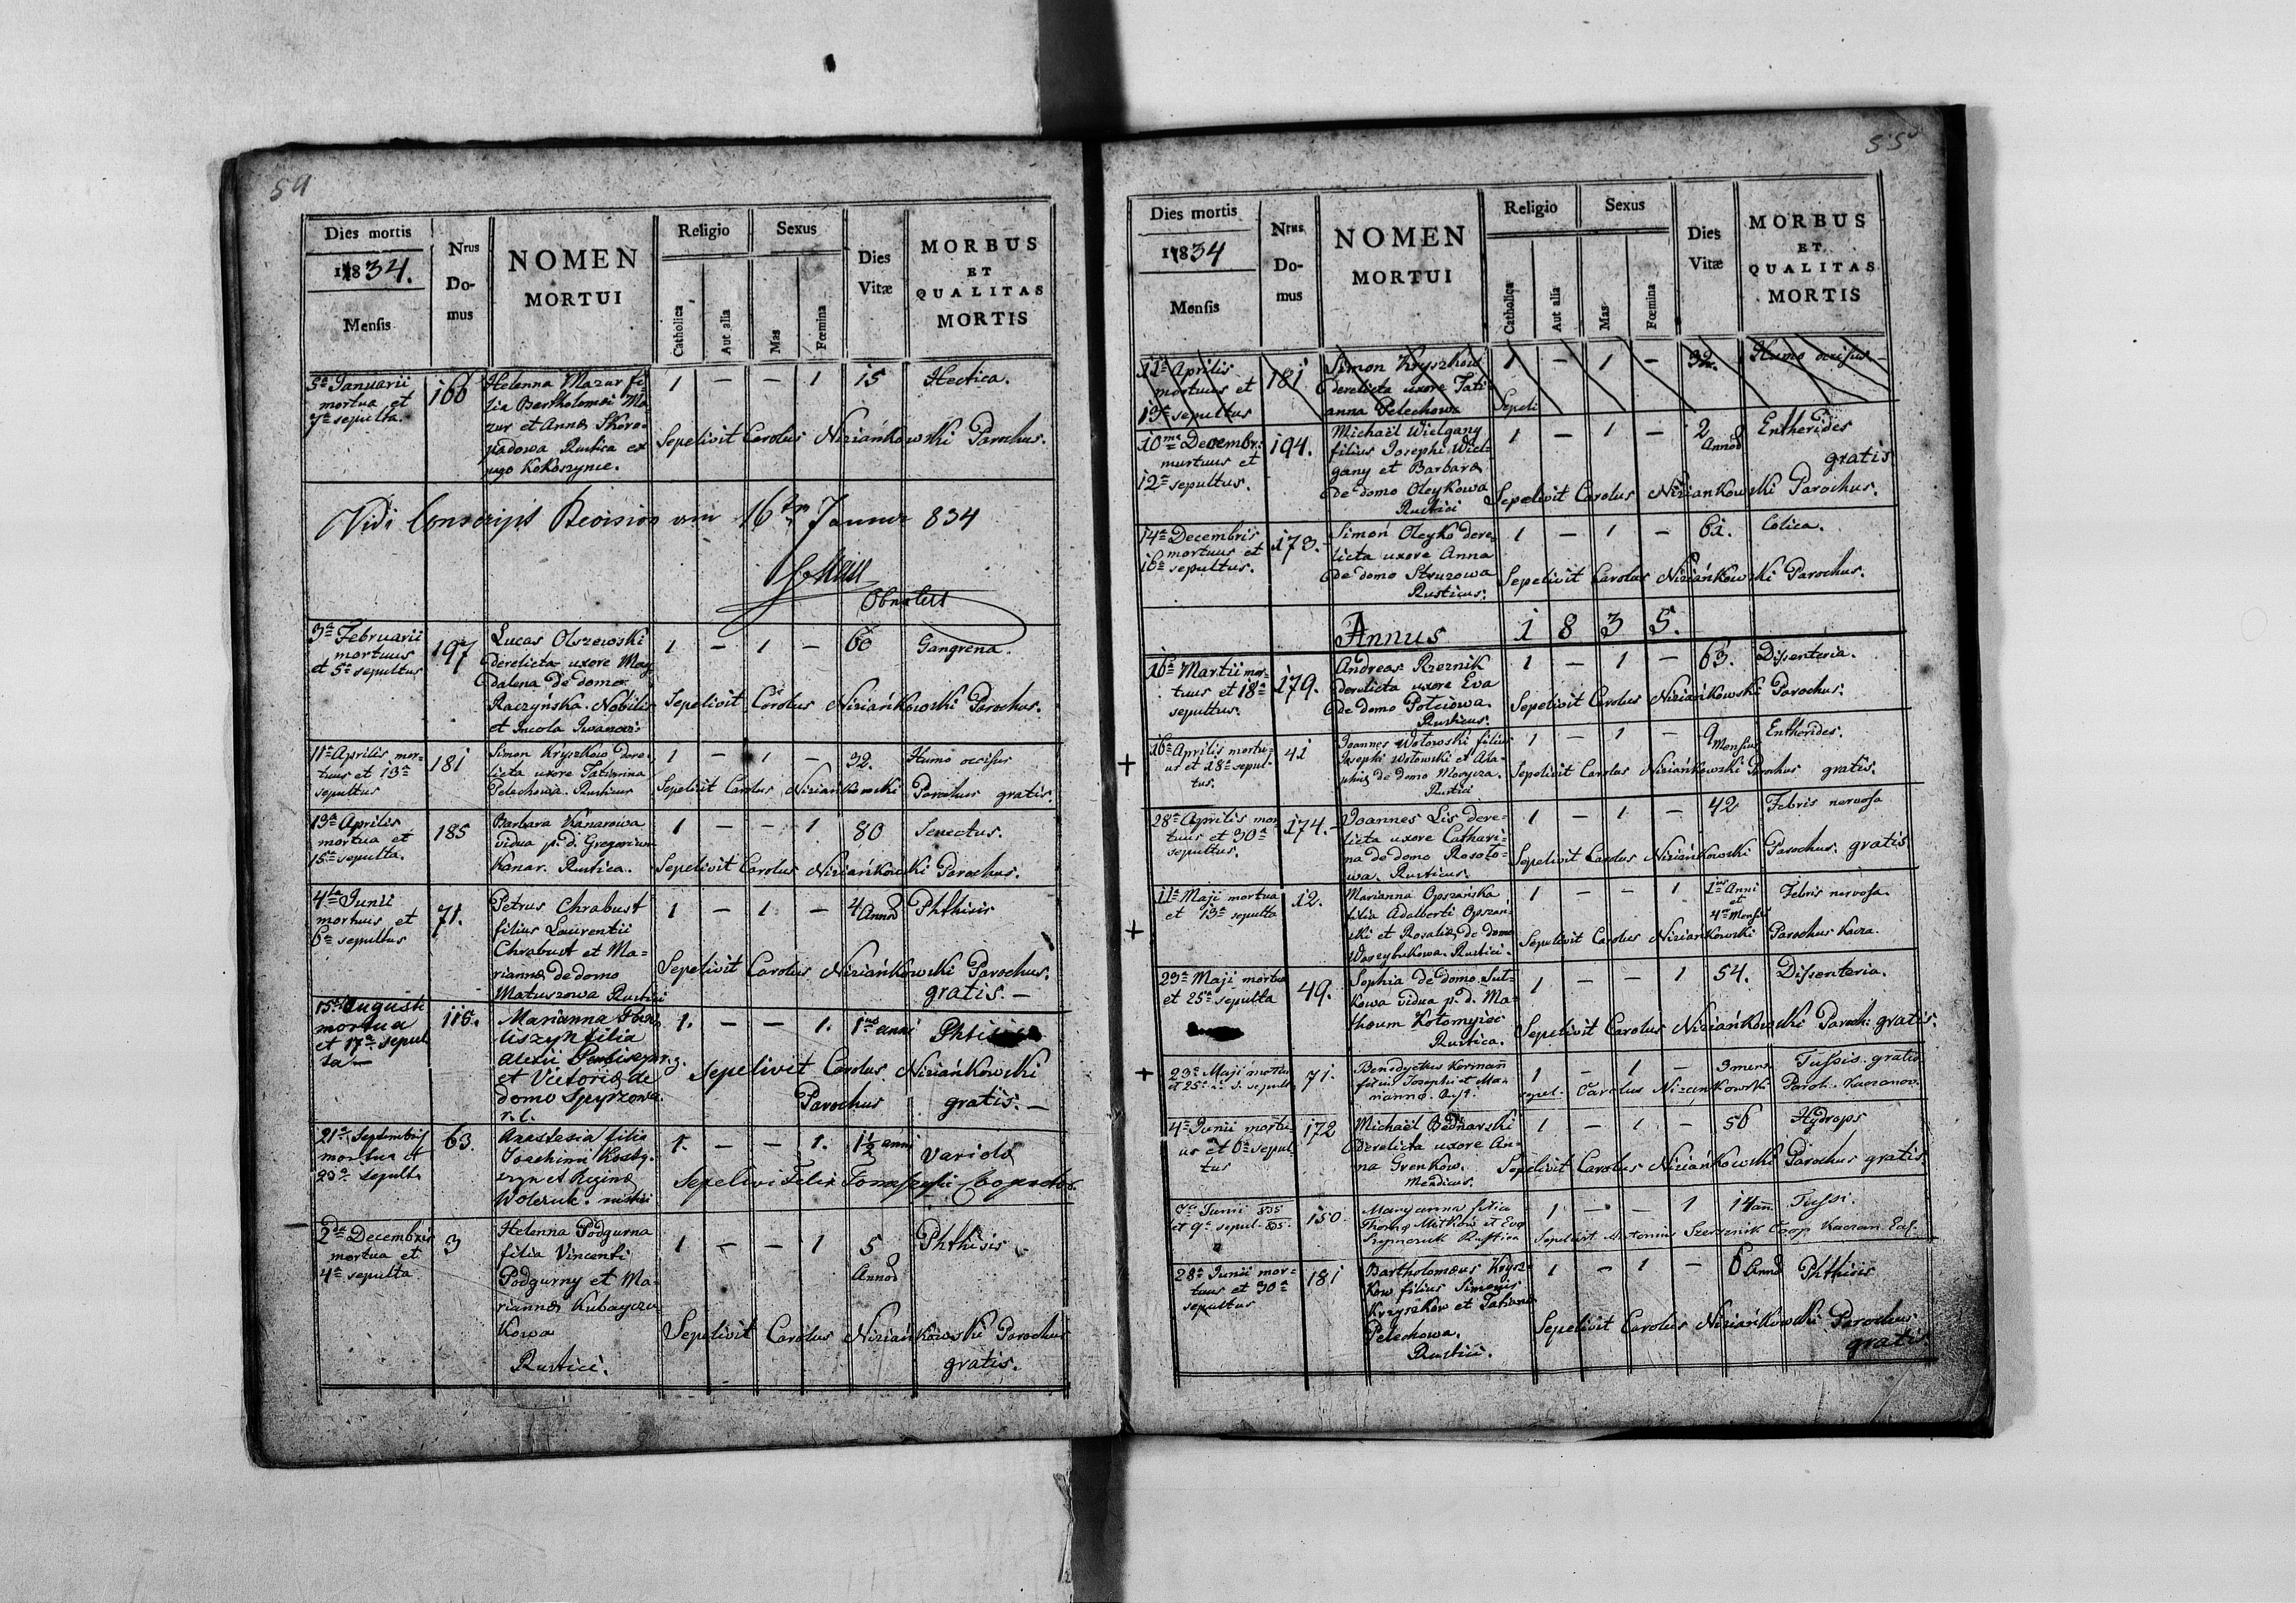 54
Dies mortis
1834.
Mensis
Nrus
Do-
mus
NOMEN
MORTUI
Religio
Catholica
Aut alia
Sexus
Mas
Fœmina
Dies
Vitæ
MORBUS
ET
QUALITAS
MORTIS
5a Januarii
mortua et
7a sepulta.
166
Helenna Mazur fi-
lia Bartholomæi Ma-
zur et Annæ Skoro-
padowa Rustica ex
pago Kokoszynce.
1 — — 1 15 Hectica.
Sepelivit Carolus Niziańkowski Parochus.
Vidi Conscript Revision am 16ten Januar 834
3a Februarii
mortuus
et 5a sepultus
197
Lucas Olszewski
derelicta uxore Mag
dalena de domo
Raczyńska. Nobilis
et Incola Iwanov:
1 — 1 — 60 Gangrena.
Sepelivit Carolus Niziańkowski Parochus.
11a Aprilis mor-
tuus et 13a
sepultus
181
Simon Kryszkow dere-
licta uxore Tatianna
Pelechowa. Rusticus
1 — 1 — 32. Humo occisus
Sepelivit Carolus Niziańkowski Parochus gratis.
13a Aprilis
mortua et
15a sepulta.
185
Barbara Kanarowa
vidua p. d. Gregorium
Kanar. Rustica.
1 — — 1 80 Senectus.
Sepelivit Carolus Niziańkowski Parochus.
4ta Junii
mortuus et
6a sepultus
71.
Petrus Chrabust
filius Laurentii
Chrabust et Ma-
riannæ de domo
Matuszowa Rustici
1 — 1 — 4 Annor Phthisis
Sepelivit Carolus Niziańkowski Parochus.
gratis. —
15a Augusti
mortua
et 17a sepul
ta —
115.
Marianna
filia
Alexii
et Victoriæ de
domo Spyrzowa
r. l.
1. — — 1. 1ius anni
Sepelivit Carolus Niziańkowski
Parochus gratis. —
21a Septembris
mortua et
23a sepulta
63.
Anastasia filia
Joachimi
et Reginæ
Wolczuk. rustici
1. — — 1. 1½ anni Variolæ
Sepelivi Felix Cooperator.
2da Decembris
mortua et
4a sepulta
3
Helenna Podgurna
filia Vincenti
Podgurny et Ma-
riannæ Kubayczu
kowa
Rustici.
1 — — 1 5
Annor
Phthisis
Sepelivit Carolus Niziańkowski Parochus
gratis.
55
Dies mortis
1834
Mensis
Nrus
Do-
mus
NOMEN
MORTUI
Religio
Catholica
Aut alia
Sexus
Mas
Fœmina
Dies
Vitæ
MORBUS
ET
QUALITAS
MORTIS
11a Aprilis
mortuus et
13a sepultus
181
Simon Kryszkow
derelicta uxore Tati
anna Pelechowa
1 — 1 — 32. Humo occisus —
Sepeli
10ma Decembr:
murtuus et
12a sepultus.
194.
Michaël Wielgany
filius Josephi Wiel-
gany et Barbaræ
de domo Oleykowa
Rustici
1 — 1 — 2
Annor
Entherides
gratis
Sepelivit Carolus Niziankowski Parochus.
14a Decembris
mortuus et
16a sepultus.
173.
Simon Oleyko dere-
licta uxore Anna
de domo Struzowa
Rusticus.
1 — 1 — 61. Colica.
Sepelivit Carolus Niziańkowski Parochus.
Annus 1835.
16a Martii mor-
tuus et 18a
sepultus.
179.
Andreas Rzeznik
derelicta uxore Eva
de domo Potciowa.
Rusticus.
1 — 1 — 63. Dissenteria.
Sepelivit Carolus Niziańkowski Parochus.
+
16a Aprilis mortu-
us et 18a sepul-
tus.
41
Joannes Wotowski filius
Josephi Wotowski et Aga-
phiæ de domo Morycza.
Rustici
1 — 1 — 9
Mensium
Entherides.
Sepelivit Carolus Niziańkowski Parochus gratis.
28a Aprilis mor
tuus et 30a
sepultus.
174.
Joannes Lis dere-
licta uxore Cathari-
na de domo Rosoło-
wa. Rusticus.
1 — 1 — 42 Febris nervosa
Sepelivit Carolus Niziańkowski Parochus. gratis
+
11a Maji mortua
et 13a sepulta
12.
Marianna Opszańska
filia Adalberti Opszań-
ski et Rosaliæ de domo
Waszybukowa. Rustici.
1 — — 1 1ius Anni
et
4or Mensi
Febris nervosa.
Sepelivit Carolus Niziankowski Parochus Kacza.
23a Maji mortua
et 25a sepulta
49.
Sophia de domo Sut-
kowa vidua p. d. Ma-
thæum Kołomyjci
Rustica.
1 — — 1 54. Dissenteria.
Sepelivit Carolus Niziańkowski Paroch: gratis.
+
23a Maji mortuus
et 25a sepult
71.
Benedyctus Kormann
filius Josephi et Ma-
riannæ. Rust.
1 — 1 — 9 mens. Tussis. gratis
sepel. Carolus Nizankowski Paroch.
4a Junii mortu-
us et 6a sepul
tus
172
Michaël Bednarski
derelicta uxore An-
na Grenkow.
Mendicus.
1 — 1 — 56 Hydrops
Sepelivit Carolus Niziańkowski Parochus gratis.
7a Junii 835
et 9a sepul. 835.
150.
Maryanna filia
Thomæ Mitkow et Evæ
Szymczuk Rustica
1 — — 1 14 ann. Tussi.
Sepelivit Antonius Szerszenik Coop
28a Junii mor-
tuus et 30a
sepultus
181
Bartholomæus Krysz-
kow filius Simonis
Kryszkow et Tatiannæ
Pelechowa.
Rustici.
1 — 1 — 6 Annor Phthisis
Sepelivit Carolus Niziańkowski Parochus
gratis.